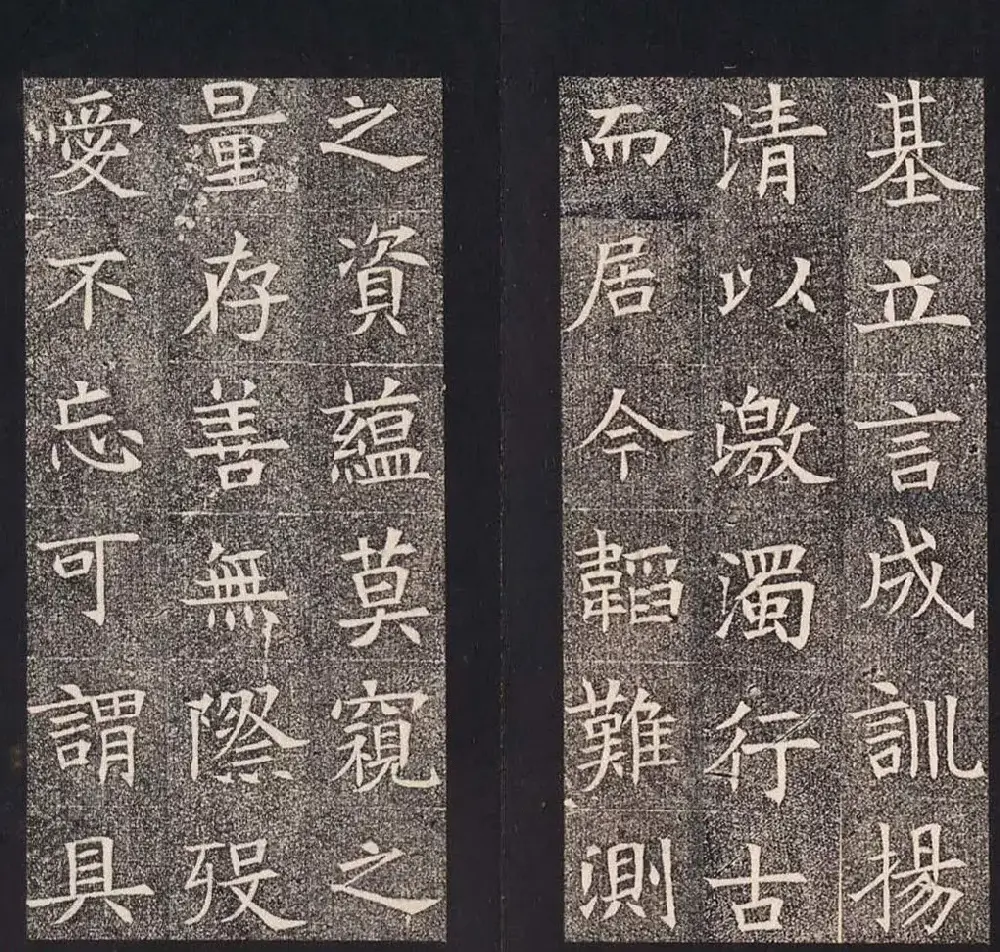 基立言成訓揚
清以激濁行古
而居今韜難測
之資蘊莫窺之
量存善無際歿
愛不忘可謂具